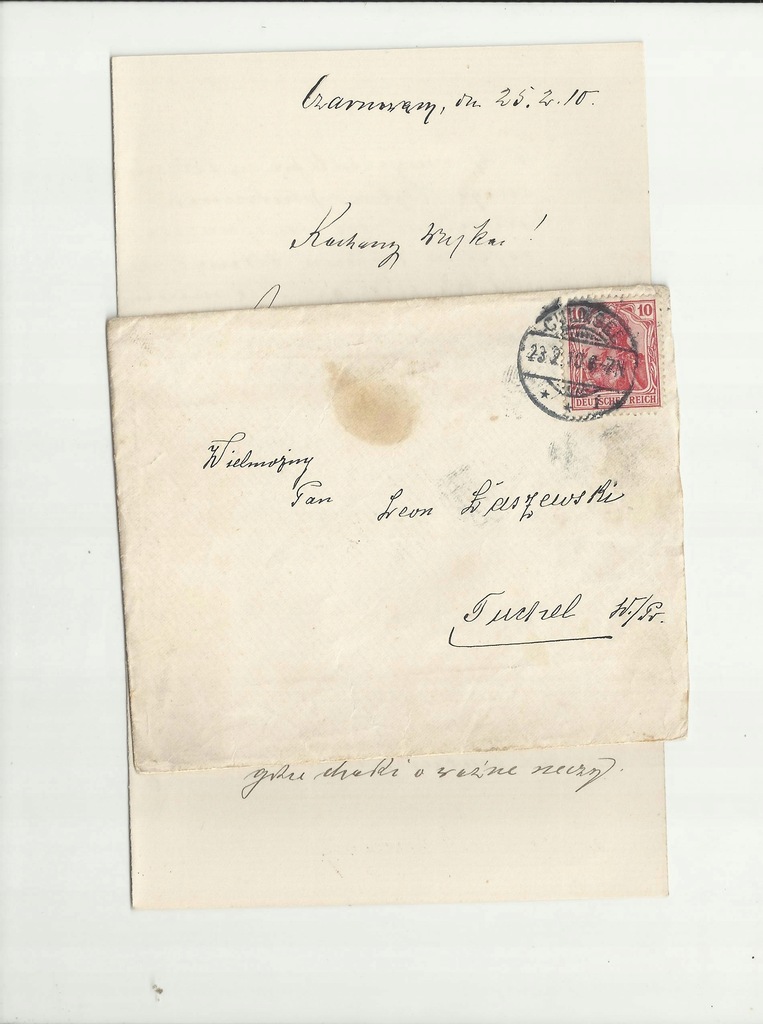 Czarnowąsy, dn. 25.2.10.
Kochany Wujku!
10
DEUTSCHES REICH
23.2.10. 6-7N
Wielmożny
Pan Leon Łaszewski
Tuchel W./Pr.
chodzi o ważne rzeczy.